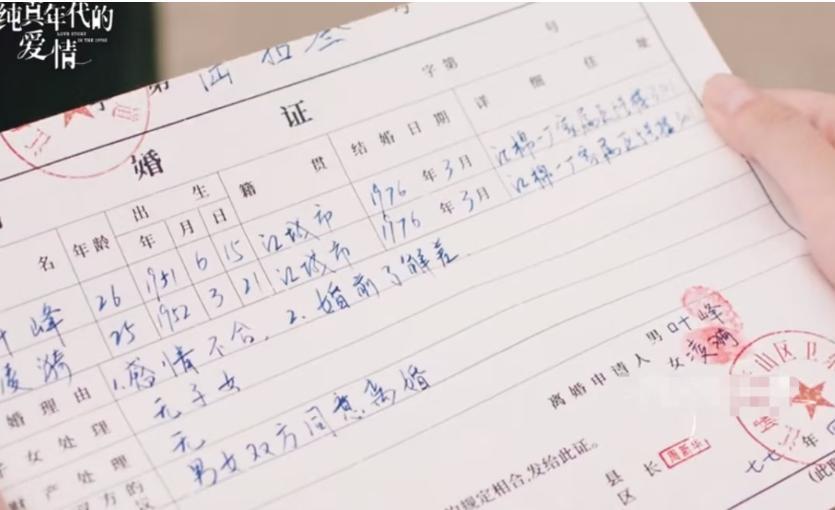 纯真年代的
爱情
LOVE STORY
IN THE 1970S
婚 证
字第 号
名 年龄 出生 年 月 日 籍贯 结婚日期 详细住址
叶峰 26 1951 6 15 江城市 1976年3月 江棉一厂家属区
凌漪 25 1952 3 21 江城市 1976年3月 江棉一厂家属区
婚理由 1.感情不合、2.婚前了解差
子女处理 无子女
财产处理 无
双方的 男女双方同意离婚
离婚申请人 男 叶峰
女 凌漪
的规定相合,发给此证。
县
区 长
山区
七七
(此